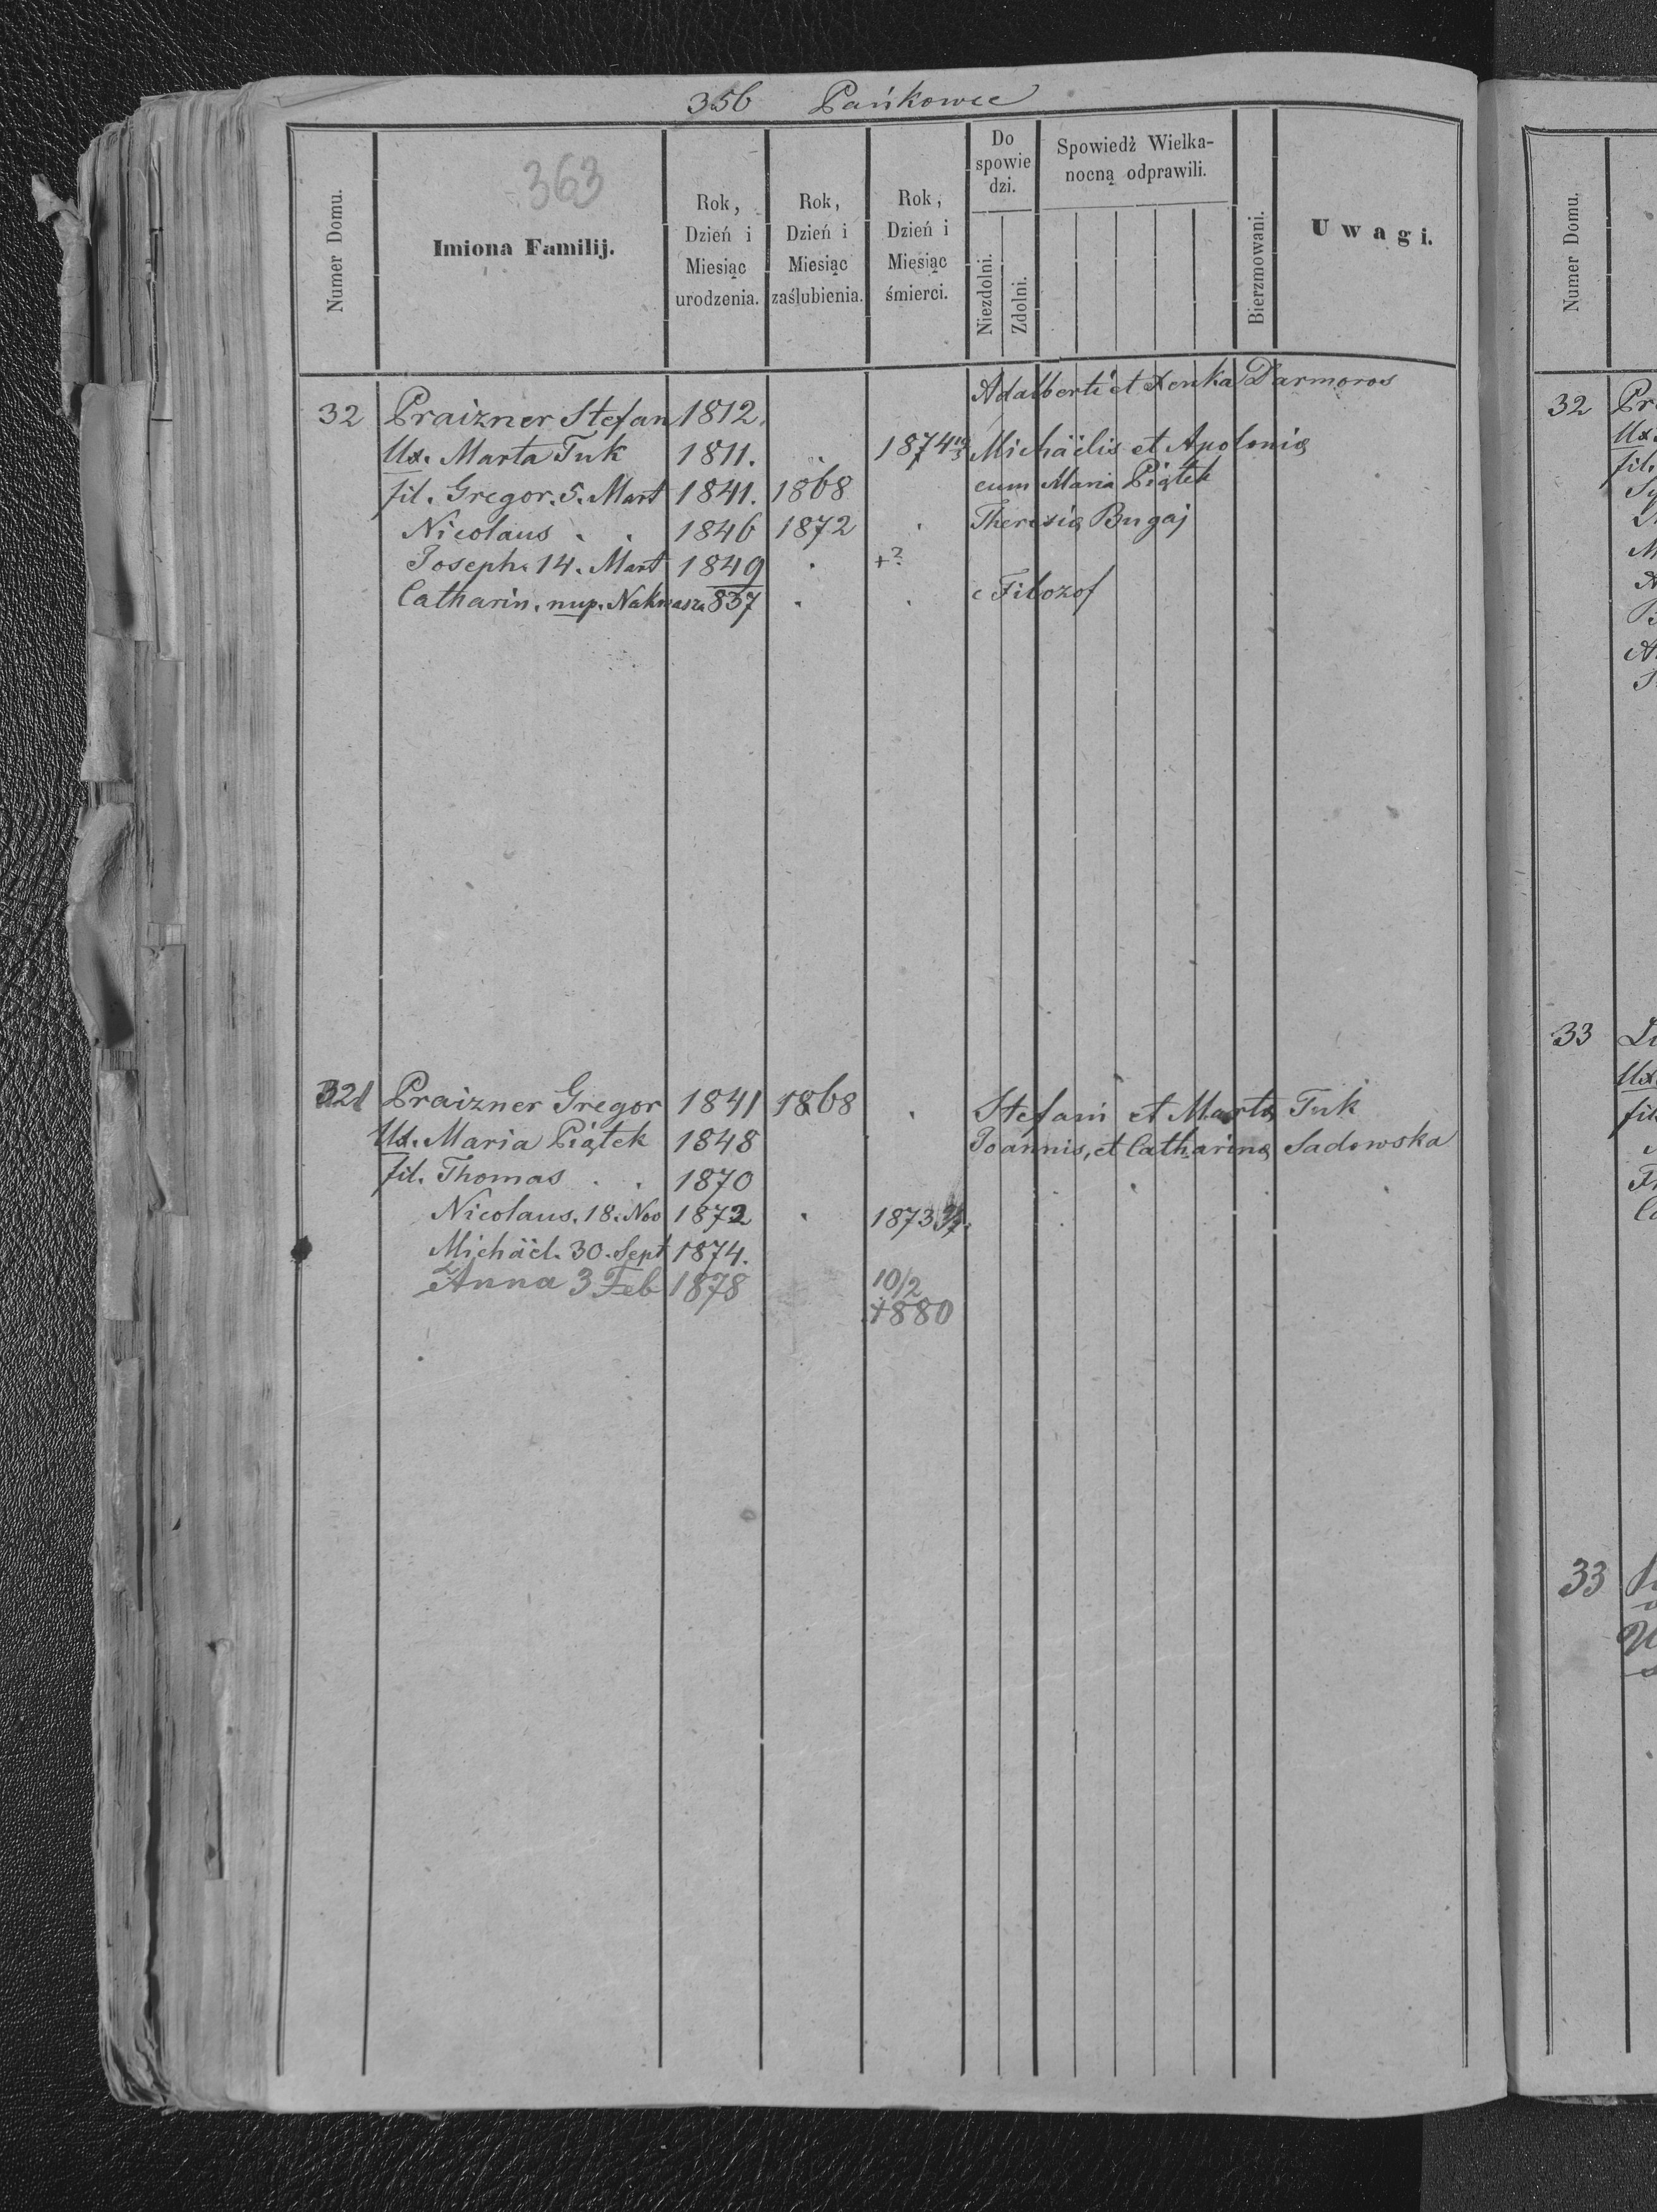 356 Pańkowce
363
Numer Domu.
Imiona Familij.
Rok, Dzień i Miesiąc urodzenia.
Rok, Dzień i Miesiąc zaślubienia.
Rok, Dzień i Miesiąc śmierci.
Do spowiedzi.
Niezdolni.
Zdolni.
Spowiedź Wielkanocną odprawili.
Bierzmowani.
Uwagi.
Adalberti et Xenka Darmoros
32 Praizner Stefan 1812.
Ux. Marta Tuk 1811. 1874 Michäelis et Apolonia
fil. Gregor. 5. Mart 1841. 1868 cum Maria Piątek
Nicolaus . . 1846 1872 . Theresia Bugaj
Joseph. 14. Mart 1849 . +?
Catharin. nup. Nakwasz. 837 . . c Filozof
321 Praizner Gregor 1841 1868 . Stefani et Marta Tuk
Ux. Maria Piątek 1848 Joannis, et Catharina Sadowska
fil. Thomas . . 1870
Nicolaus. 18. Nov 1872 . 1873
Michäel. 30. Sept 1874.
Anna 3 Feb 1878 10/2
+880
Numer Domu.
32 Pr
Ux.
fil.
33
Ux.
fil
33